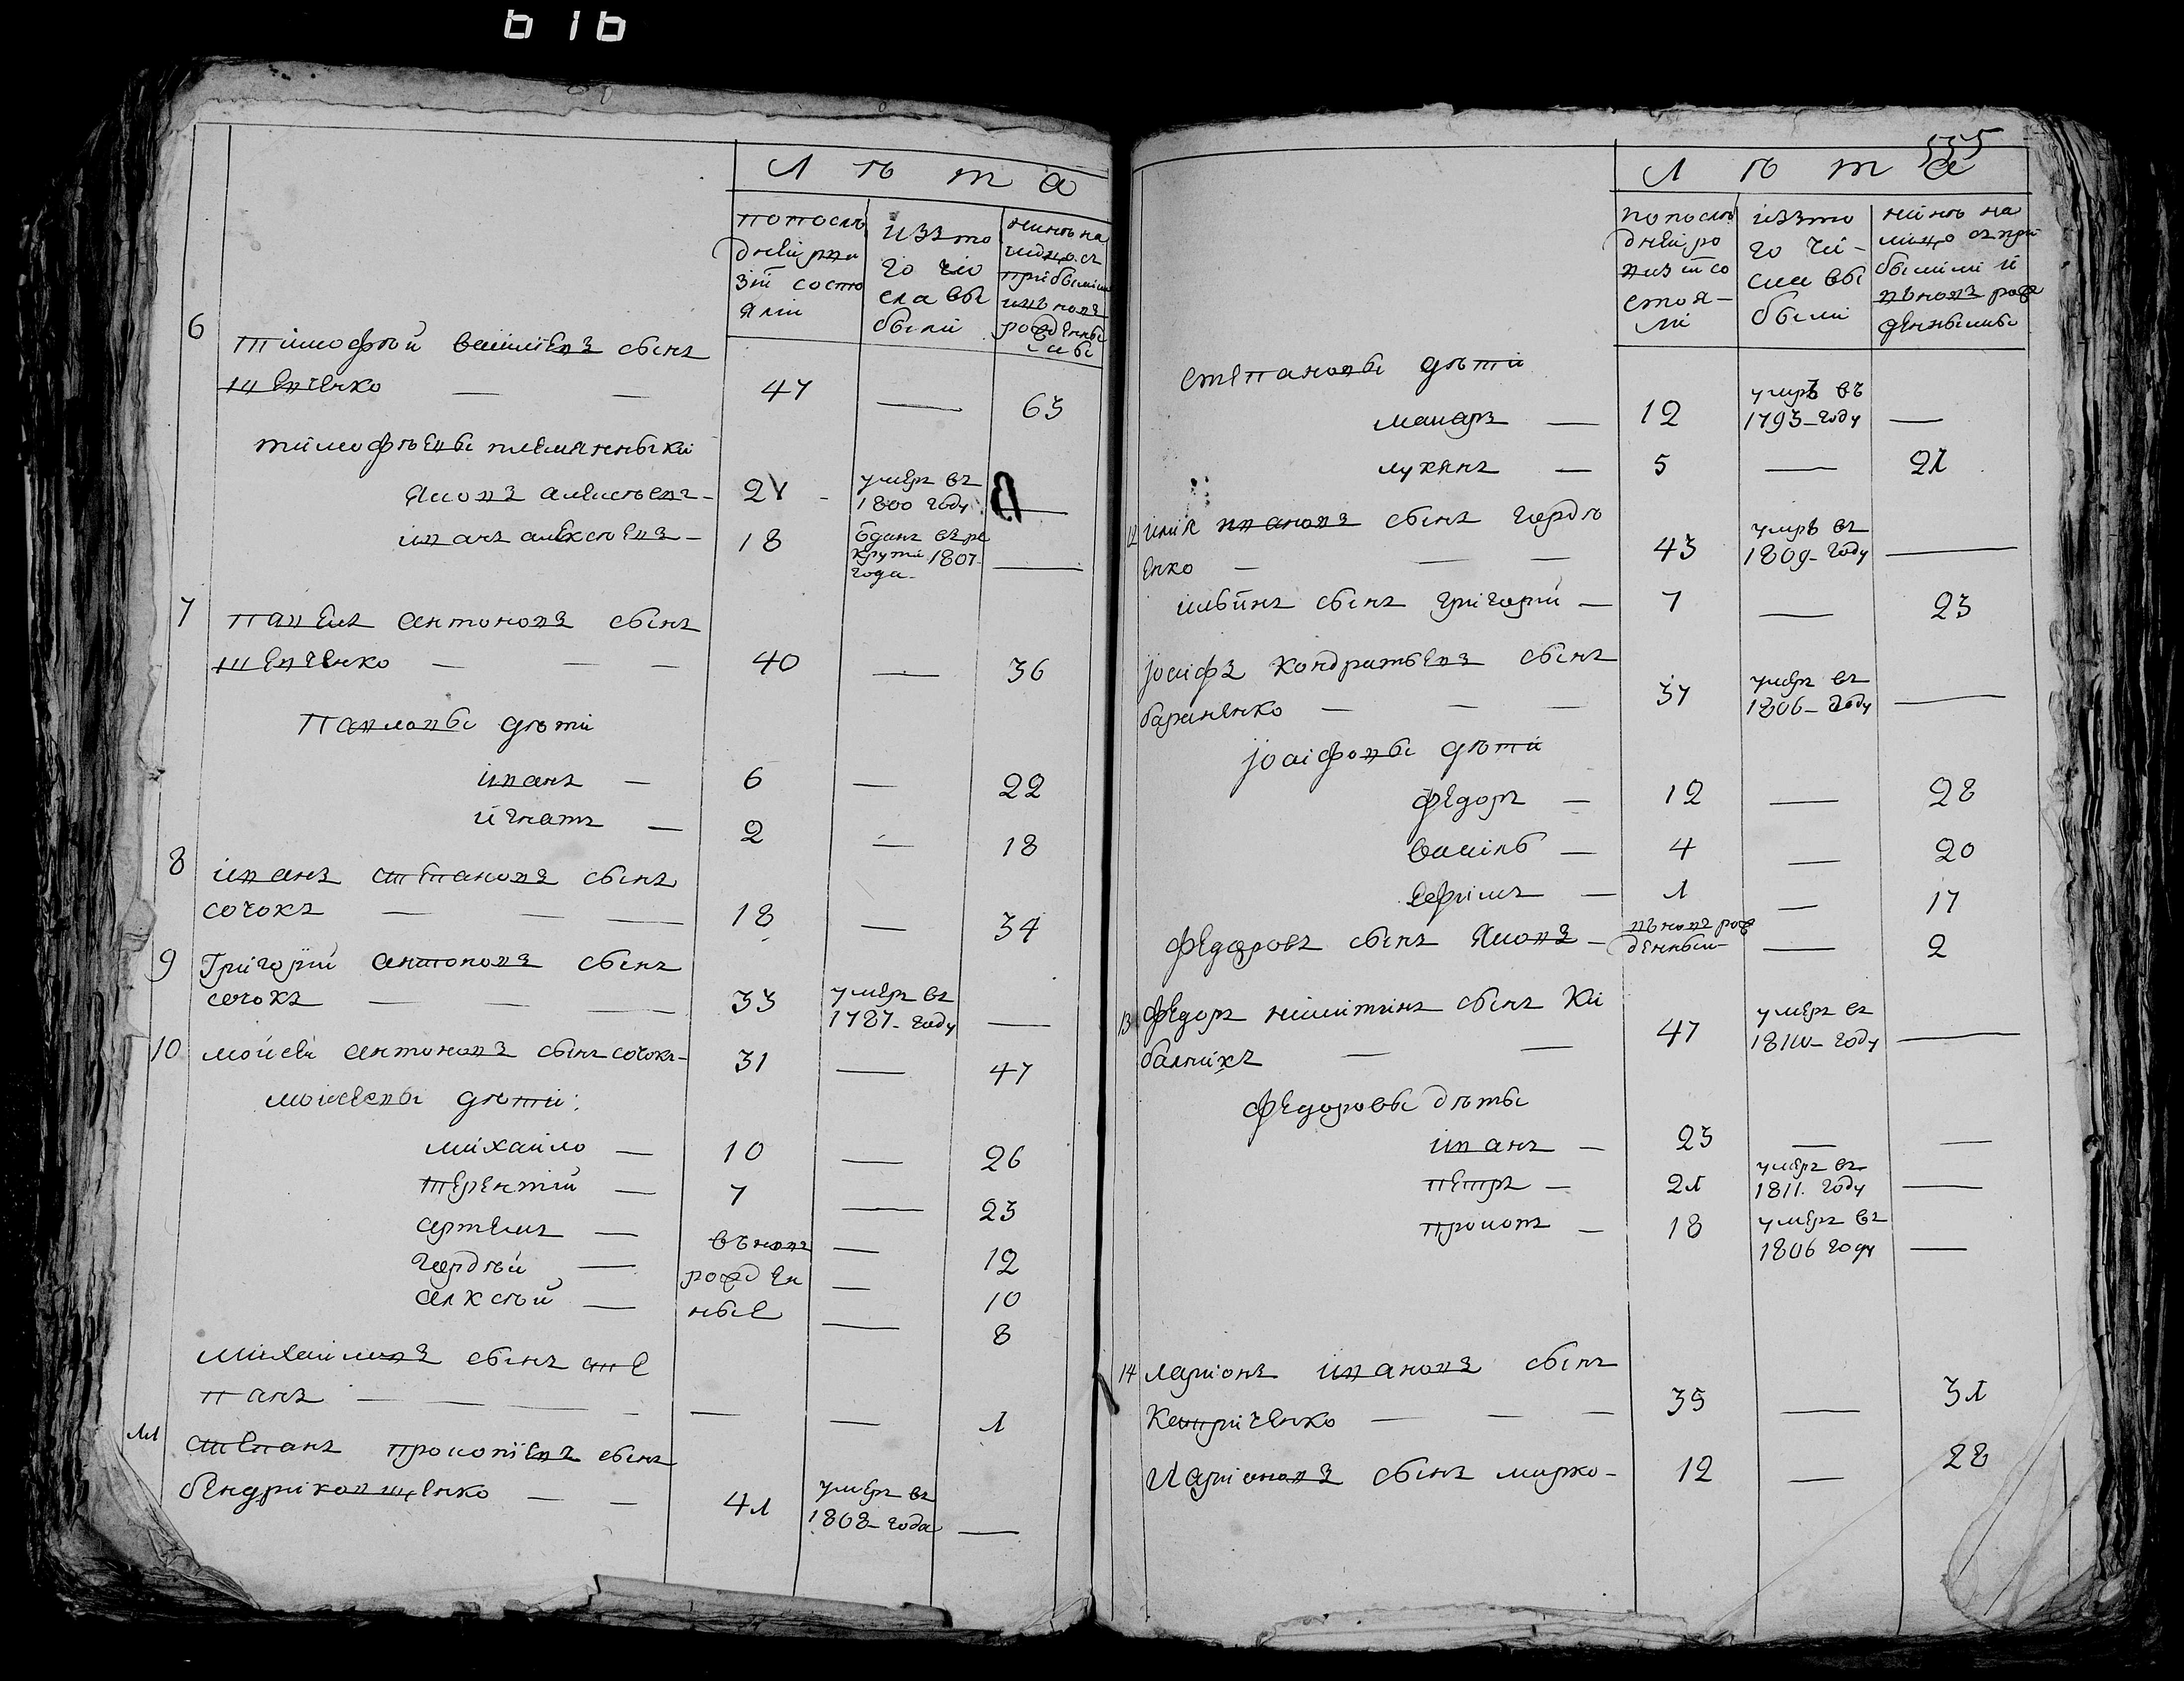 616
Л ѣ т а
попослѣ
дней реви
зіи состо
яли
иззто
го чи
сла вы
были
нынѣ на
лицо съ
прибылыми
ивновь
рожденны
ми
6 Тимофѣй васильевъ сынъ
шевченко — — 47 — 63
тимофѣевы племянныки
Яковъ алексѣевъ — 27 — умеръ въ 1800 году —
иванъ алексѣевъ — 18 отданъ въ ре
крути 1807
года —
7 Павелъ антоновъ сынъ
шевченко — — — 40 — 36
Павловы дѣти
иванъ — 6 — 22
игнатъ — 2 — 18
8 иванъ степановъ сынъ
сочокъ — — — 18 — 34
9 Григорій антоновъ сынъ
сочокъ — — — 33 умеръ въ
1787 году —
10 мойсей антоновъ сынъ сочокъ — 31 — 47
мойсеевы дѣти:
михайло — 10 — 26
терентій — 7 — 23
артемъ — въновь — 12
гордѣй — рожден — 10
алксѣй — ные — 8
михайловъ сынъ сте
панъ — — — — — — 1
11 степанъ прокопіевъ сынъ
— — 41 умеръ въ
1808 года —
555
Л ѣ т а
попослѣ
дней ре
визіи со
стоя-
ли
иззто
го чи-
сла вы
были
нынѣ на
лицо съ при
былими и
въновь рож
денными
степановы дѣти
макаръ — 12 умръ въ
1793 году —
лукянъ — 5 — 21
12 илія ивановъ сынъ гордѣ
енко — — — 43 умръ въ
1809 году —
ильинъ сынъ григорій — 7 — 23
Іосифъ кондратьевъ сынъ
бараненко — — — 37 умеръ въ
1806 году —
Іосифовы дѣти
федоръ — 12 — 28
василь — 4 — 20
ефримъ — 1 — 17
федоровъ сынъ Яковъ — въновь рож
денный — 2
13 федоръ никитинъ сынъ Ки
балникъ — — 47 умеръ въ
1810 году —
федоровы дѣты
иванъ — 23 — —
петръ — 21 умеръ въ
1811 году —
прокопъ — 18 умеръ въ
1806 году —
14 ларіонъ ивановъ сынъ
— — — 35 — 31
Ларіоновъ сынъ марко — 12 — 28